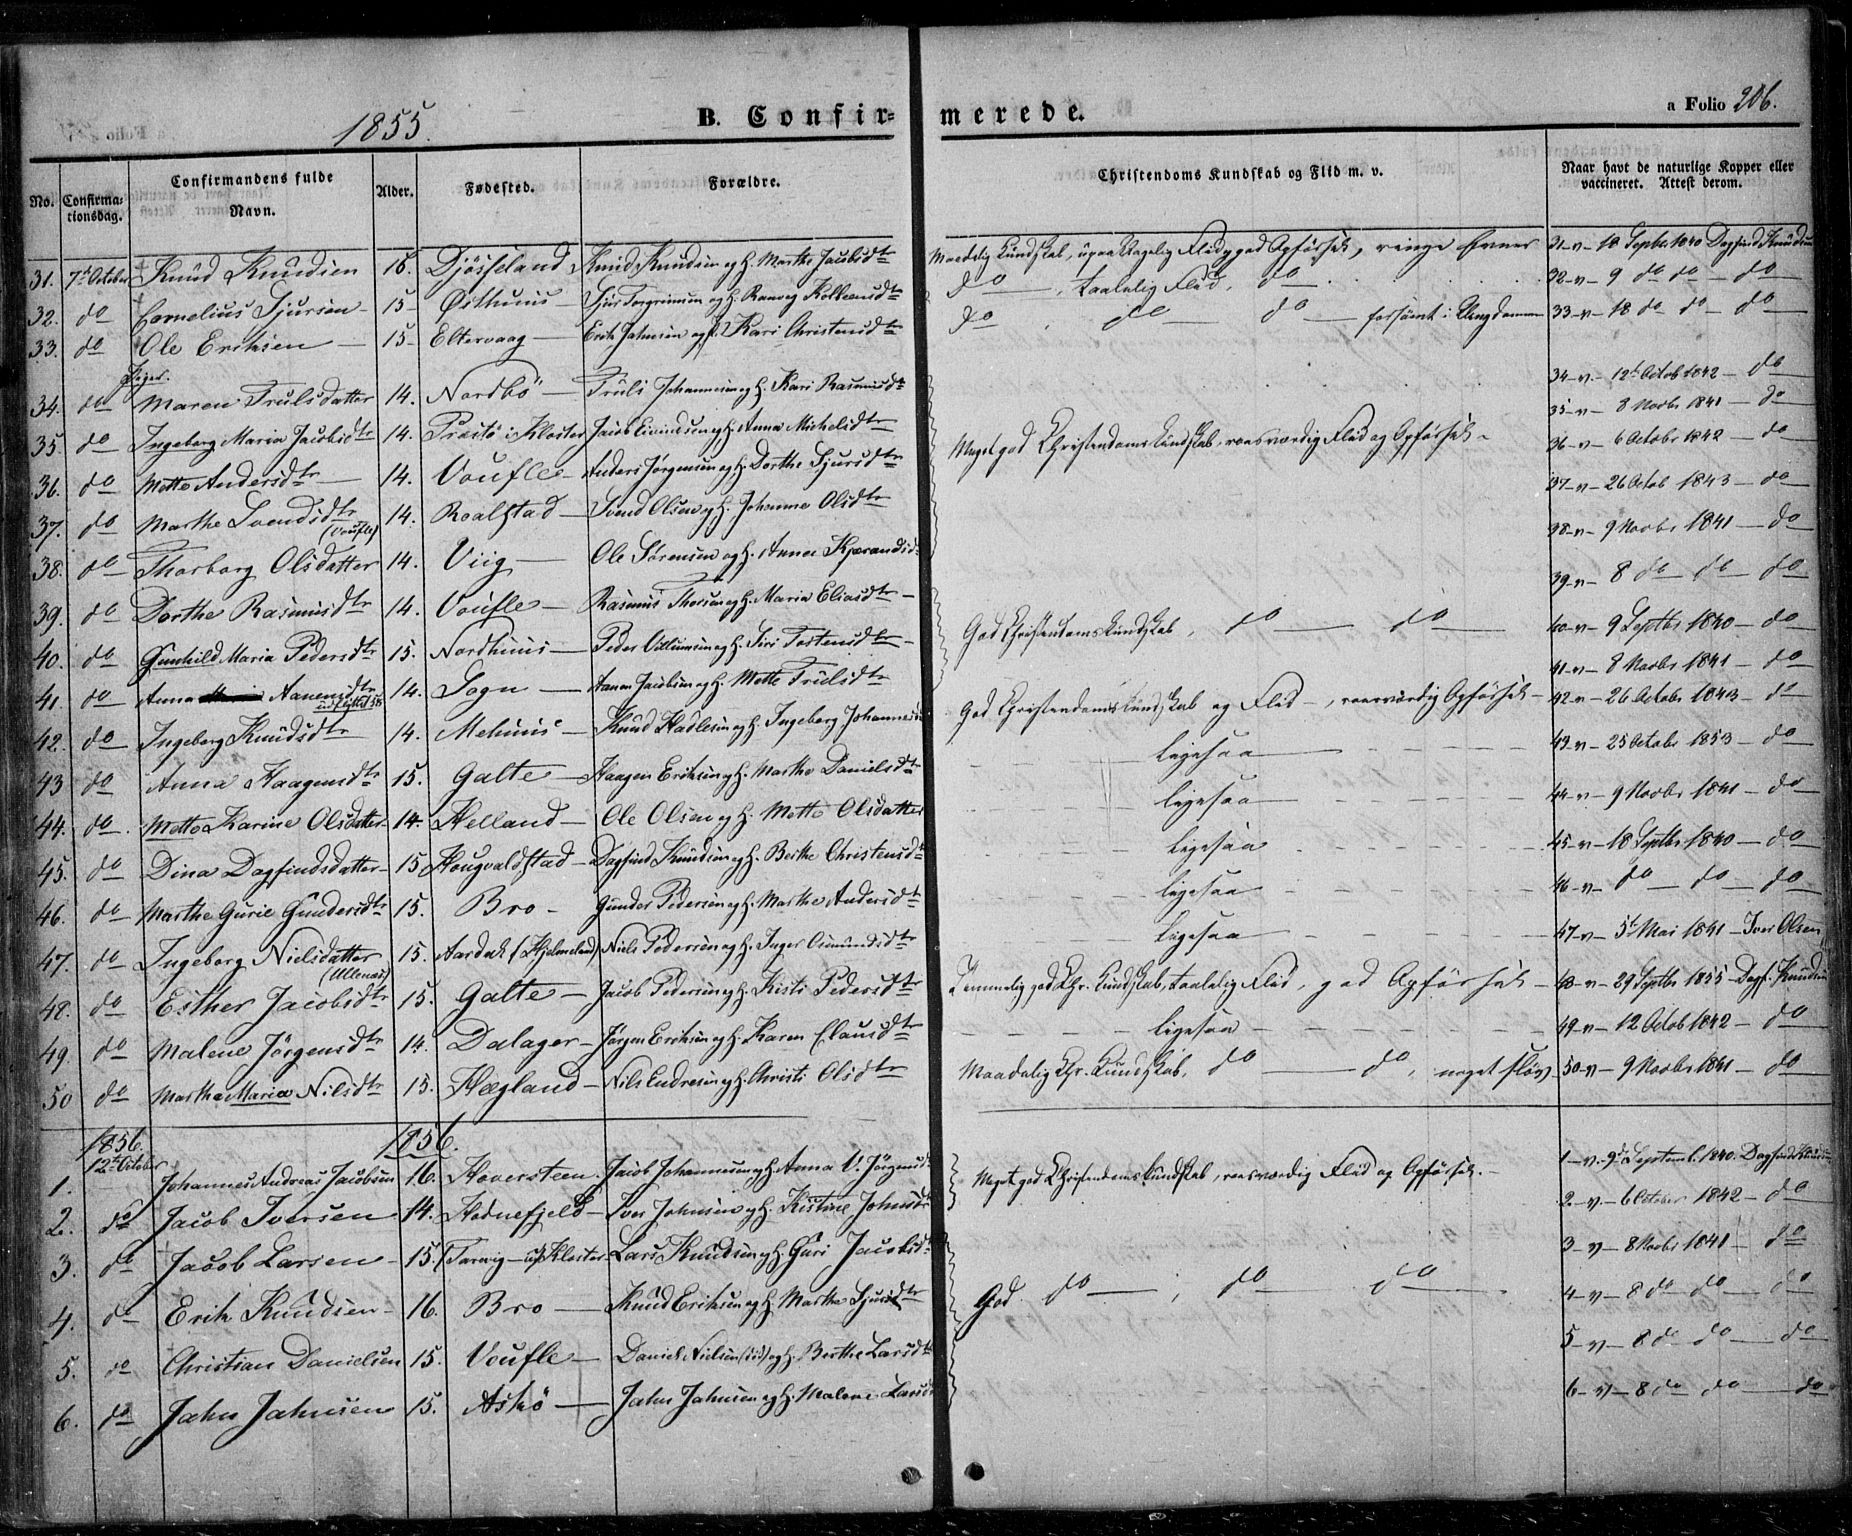 1855.
B. Confirmerede.
a Folio 206.
No. Confirmationsdag. Confirmandens fulde Navn. Alder. Fødested. Forældre. Christendoms Kundskab og Flid m. v. Naar havt de naturlige Kopper eller vaccineret. Attest derom.
31. 7de October Knud Knudsen 16. Djösseland Knud Knudsen og H. Marthe Jacobsdtr Maadelig Kundskab, Flid, god Opførsel, ringe Evner 31-v- 18 Septbr 1840 Dagfind Knudsen
32. do Cornelius Sjursen 15 Østhuus Sjur Torgrimsen og H. Ranveg do taalelig Flid, do 32-v- 9 do do do
33. do Ole Eriksen 15 Eltervaag Erik Jahnsen og H. Kari Christensdtr do do do forsømt i Ungdommen 33-v- 18 do do do
Piger.
34. do Maren Trulsdatter 14. Nordbö Truls Johannesen og H. Kari Rasmusdtr 34-v- 12te Octob 1842 do
35. do Ingeborg Maria Jacobsdtr 14. i Kloster Jacob Eivindsen og H. Anna Michelsdtr Meget god Christendomskundskab, roesværdig Flid og Opførsel 35-v- 8 Novbr 1841 do
36. do Mette Andersdtr 14. Voufle Anders Jørgensen og H. Dorthe Sjursdtr 36-v- 6 Octobr 1842 do
37. do Marthe Svendsdtr (Voufle) 14. Roalstad Svend Olsen og H. Johanne Olsdtr 37-v- 26 Octob 1843 do
38. do Thorborg Olsdatter 14. Viig Ole Sørensen og H. Anna 38-v- 9 Novbr 1841 do
39. do Dorthe Rasmusdtr 14. Voufle Rasmus Thorsen og H. Maria Eliasdtr 39-v- 8 do do do
40. do Gunhild Maria Pedersdtr 15. Nordhuus Peder Villumsen og H. Siri Tostensdtr God Christendomskundskab, do do 40-v- 9 Septbr 1840 do
41. do Anna Aanensdtr 14. Sogn Aanen Jacobsen og H. Mette Trulsdtr 41-v- 8 Novbr 1841 do
42. do Ingeborg Knudsdtr 14. Mehuus Knud Hadlesen og H. Ingeborg Johannesdtr God Christendomskundskab og Flid, roesværdig Opførsel 42-v- 26 Octobr 1843 do
43 do Anna Haagensdtr 15. Galte Haagen Eriksen og H. Marthe Danielsdtr ligesaa 43-v- 25 Octobr 1853 do
44. do Mette Karine Olsdatter 14. Helland Ole Olsen og H. Mette Olsdatter ligesaa 44-v- 9 Novbr 1841 do
45. do Dina Dagfindsdatter 15 Hougvaldstad Dagfind Knudsen og H. Berthe Christensdtr ligesaa 45-v- 18 Septbr 1840 do
46. do Marthe Gurie Gundersdtr 15. Bro Gunder Pedersen og H. Marthe Andersdtr ligesaa 46-v- do do do
47. do Ingeborg Nielsdatter 15. Aardal (Hjelmeland) Niels Pedersen og H. Inger Osmundsdtr ligesaa 47-v- 5te Mai 1841 Iver Olsen
48. do Esther Jacobsdtr 15. Galte Jacob Pedersen og H. Kisti Pedersdtr Temmelig god Chr. Kundskab, taalelig Flid, god Opførsel 48-v- 29 Septbr 1855 Dagf. Knudsen
49. do Malene Jørgensdtr 14. Dalager Jørgen Eriksen og H. Karen Clausdtr ligesaa 49-v- 12 Octob 1842 do
50 do Martha Maria Nilsdtr 15. Hægland Nils Endresen og H. Christi Olsdtr Maadelig Chr. Kundskab, do do, noget sløv 50-v- 9 Novbr 1841 do
1856. 1856.
1. 12te October Johannes Andreas Jacobsen 16. Hoversteen Jacob Johannesen og H. Anna V. Jørgensdtr Meget god Christendomskundskab, roesværdig Flid og Opførsel. 1-v- 9de Septemb. 1840. Dagfind Knudsen
2. do Jacob Iversen 14. Hodnefjeld Iver Johnsen og H. Kistine Johnsdtr 2-v- 6 October 1842 do
3. do Jacob Larsen 15. Kloster Lars Knudsen og H. Guri Jacobsdtr 3-v- 8 Novbr 1841 do
4. do Erik Knudsen 16. Bro Knud Eriksen og H. Marthe Sjursdtr God do, do do 4-v- 8 do do do
5. do Christian Danielsen 15. Voufle Daniel Nielsen og H. Berthe Larsdtr 5-v- 8 do do do
6. do Jahn Jahnsen 15. Askö Jahn Jahnsen og H. Malene Larsdtr 6-v- 8 do do do